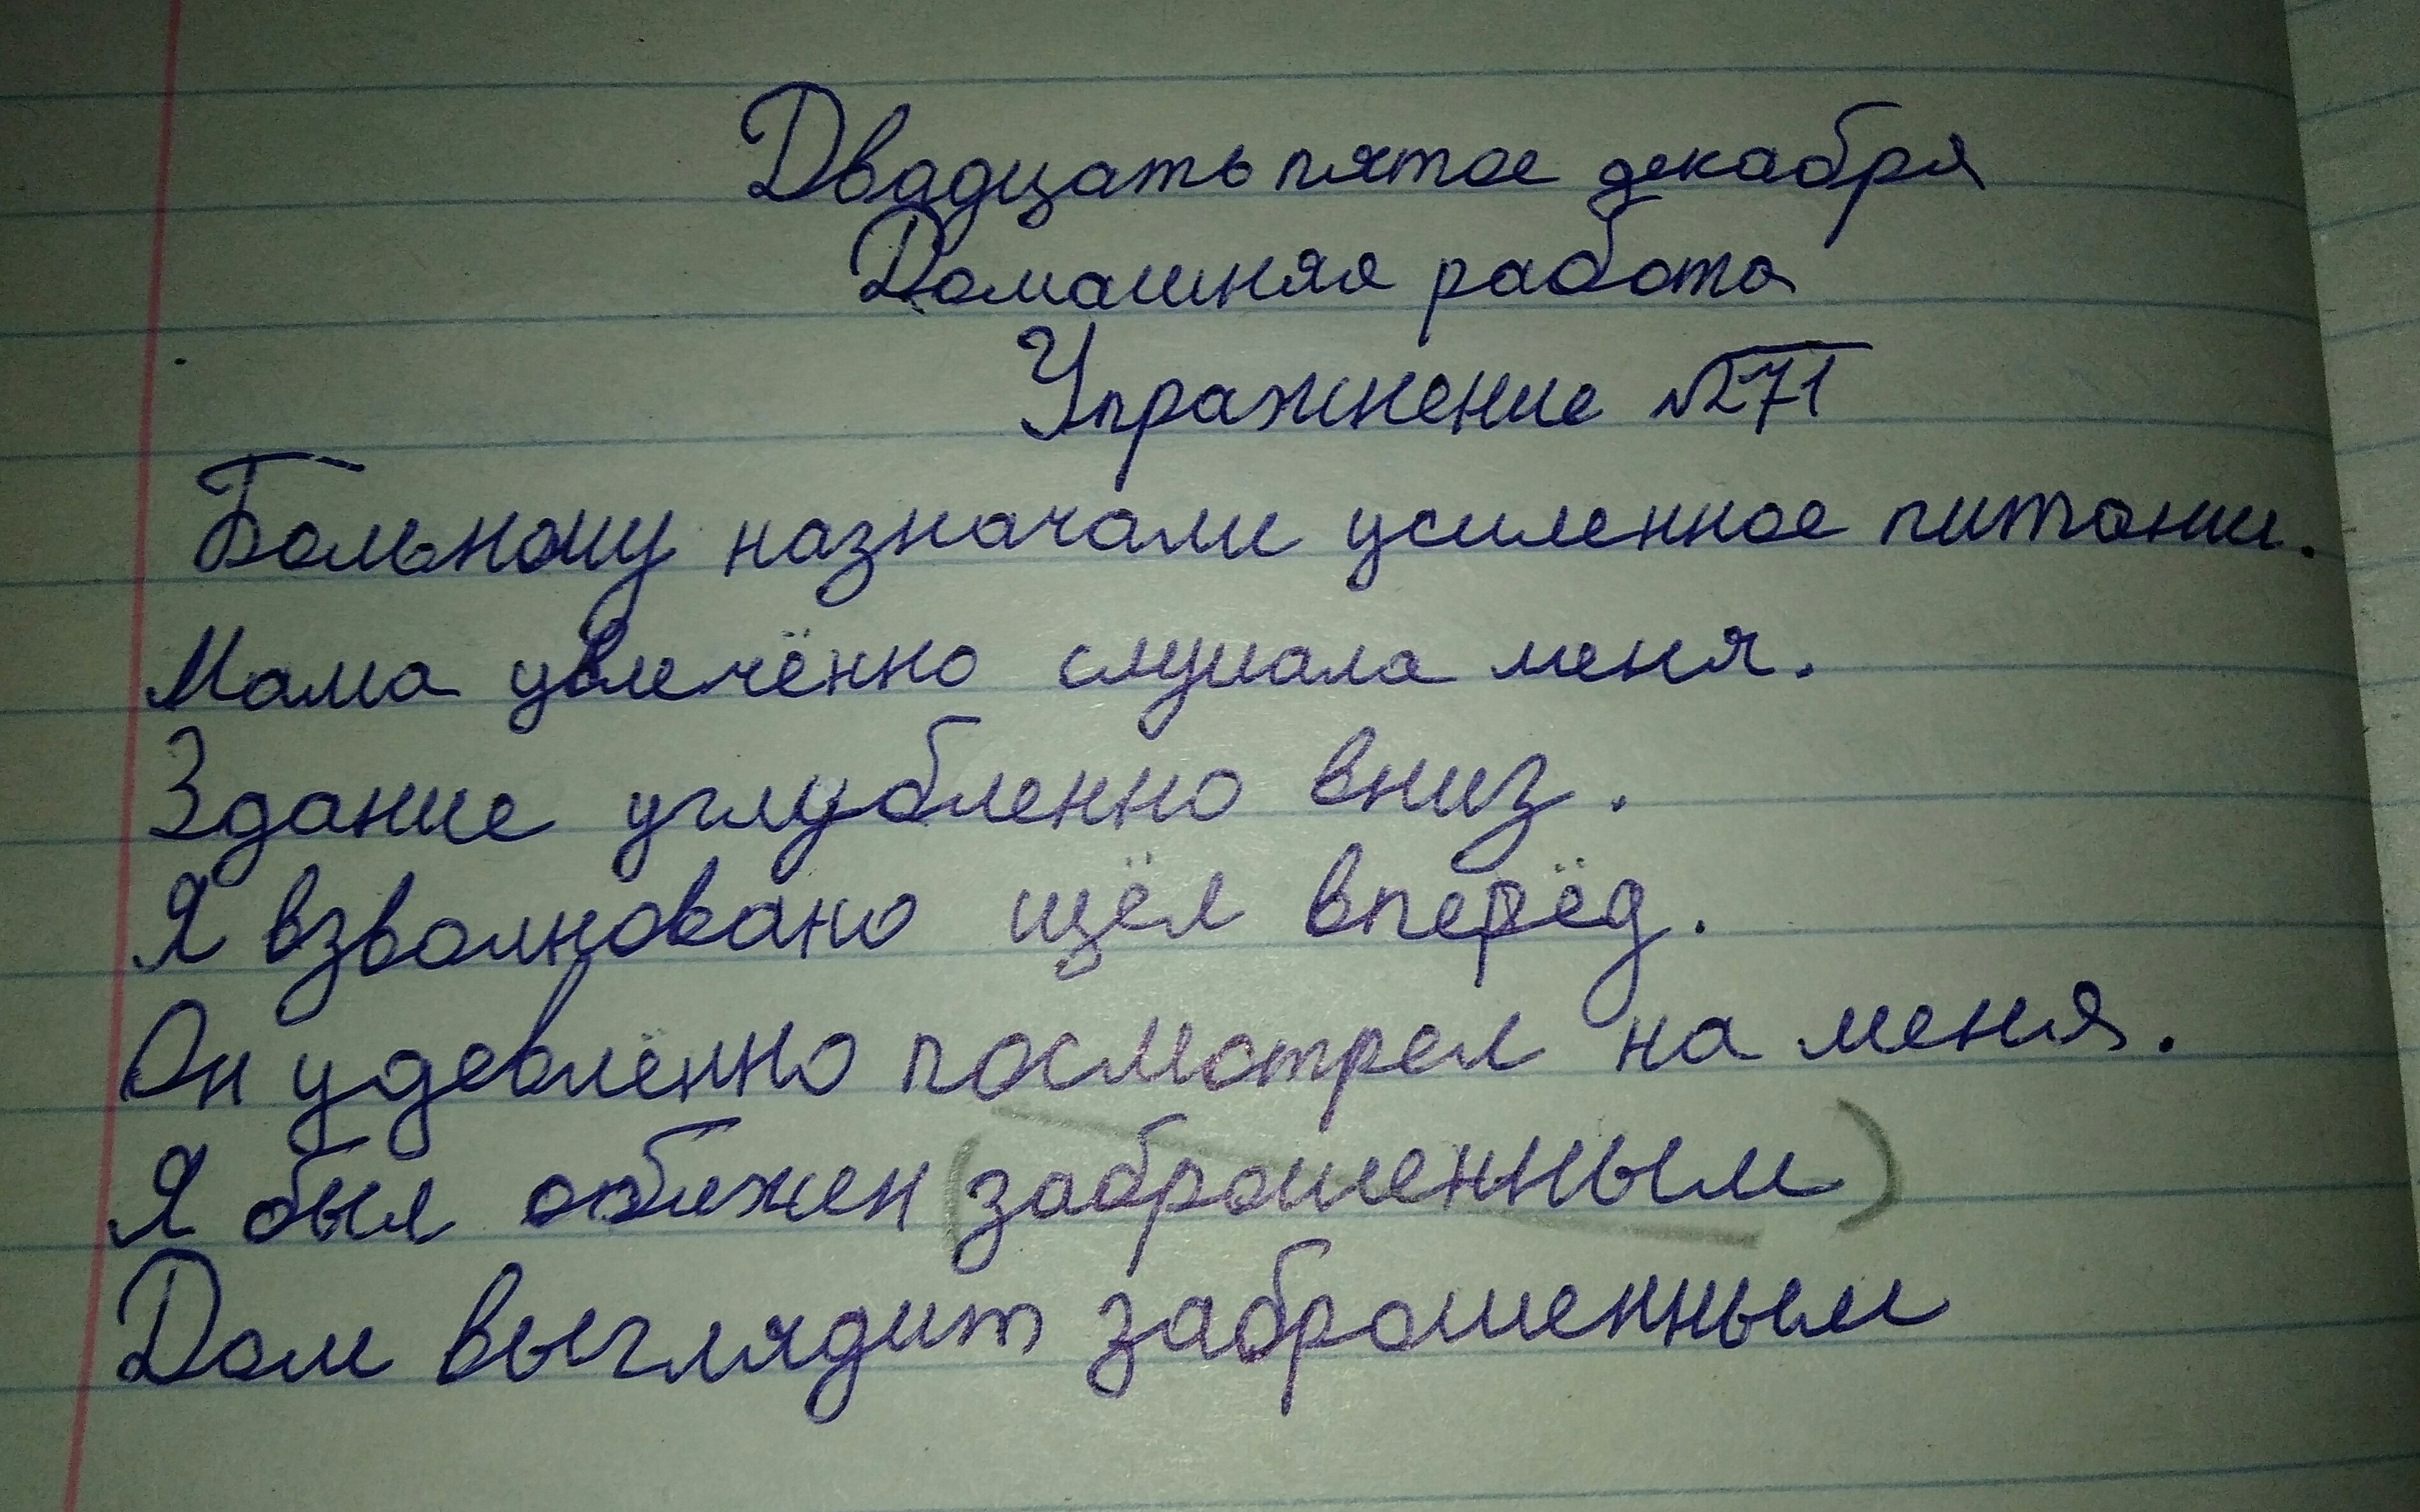 Двадцать пятое декабря
Домашняя работа
Упражнение №271
Больному назначали усиленное питании.
Мама увлечённо слушала меня.
Здание углубленно вниз.
Я взволновано щёл вперёд.
Он удевлённо посмотрел на меня.
Я был обижен (заброшенным)
Дом выглядит заброшенным